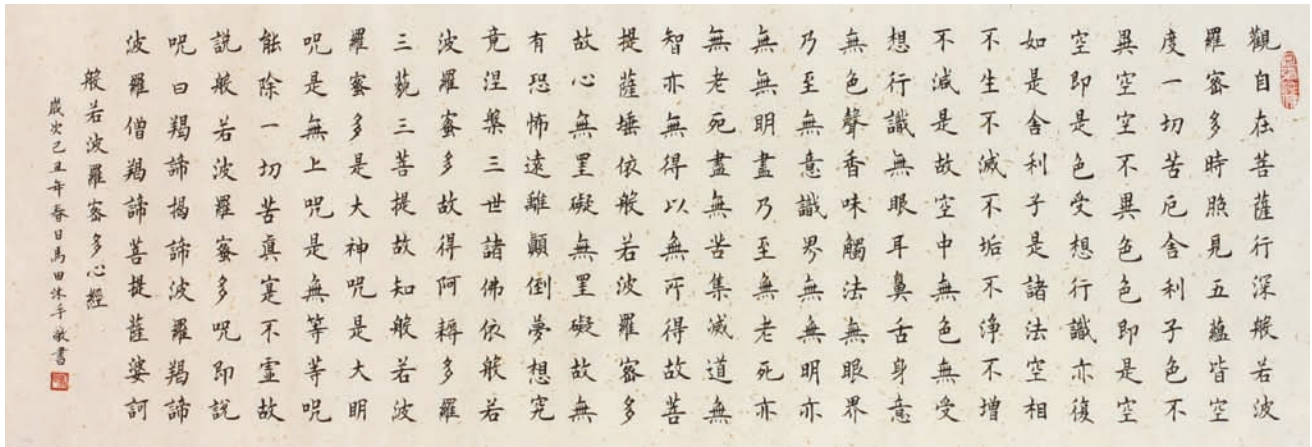 觀自在菩薩行深般若波
羅蜜多時照見五蘊皆空
度一切苦厄舍利子色不
異空空不異色色即是空
空即是色受想行識亦復
如是舍利子是諸法空相
不生不滅不垢不淨不增
不減是故空中無色無受
想行識無眼耳鼻舌身意
無色聲香味觸法無眼界
乃至無意識界無無明亦
無無明盡乃至無老死亦
無老死盡無苦集滅道無
智亦無得以無所得故菩
提薩埵依般若波羅蜜多
故心無罣礙無罣礙故無
有恐怖遠離顛倒夢想究
竟涅槃三世諸佛依般若
波羅蜜多故得阿耨多羅
三藐三菩提故知般若波
羅蜜多是大神呪是大明
呪是無上呪是無等等呪
能除一切苦真寔不虛故
說般若波羅蜜多呪即說
呪曰羯諦揭諦波羅羯諦
波羅僧羯諦菩提薩婆訶
般若波羅蜜多心經
歲次己丑年春日馬田沐手敬書